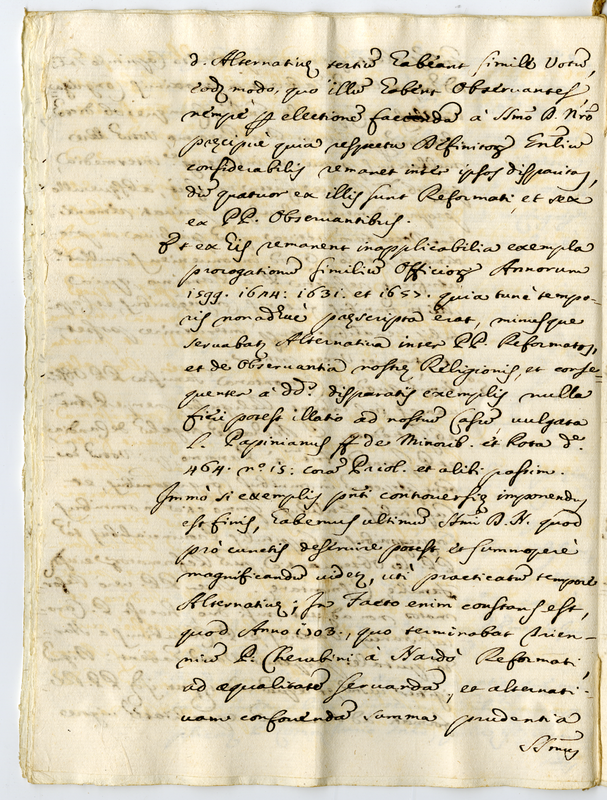 d. Alternativę tertiũ habeant simile Votũ,
eodẽ modo, quo illũ habent Observantes,
nempè ꝑ electione facienda à SSm̃o D. Nr̃o
pręcipuè quia respectu Definitorȝ Entiũ
considerabilis remanet inter ipsos disparitas,
dũ quatuor ex illis sunt Reformati, et sex
ex PP. Observantibus.
Et ex his remanent inapplicabilia exempla
prorogationũ similiũ Officiorȝ Annorum
1599. 1614: 1631. et 1657. quia tunc tempo-
ris non adhuc pręscripta erat, minusque
servabatr Alternativa inter PP. Reformatos,
et de Observantia nostrę Religionis, et conse-
quenter à dd.s disparatis exemplis nulla
fieri potest illatio ad nostrũ Casũ, vulgata
L. Papinianus ff de Minorib. et Rota d.
464. n.º 15. corã Priol. et alibi passim.
Immò si exemplis pñti controversię imponendus
est finis, habemus ultimũ SSm̃i D. N. quod
prò cunctis deservire potest, et summoperè
magnificandũ videtr, utì practicatũ tempore
Alternativę; In Facto enim constans est,
quod Anno 1703., quo terminabat Trien-
niũ P. Cherubini à Nardò Reformati,
ad æqualitatẽ servandã, et alternati-
vam confovendã summa prudentia
SSm̃us